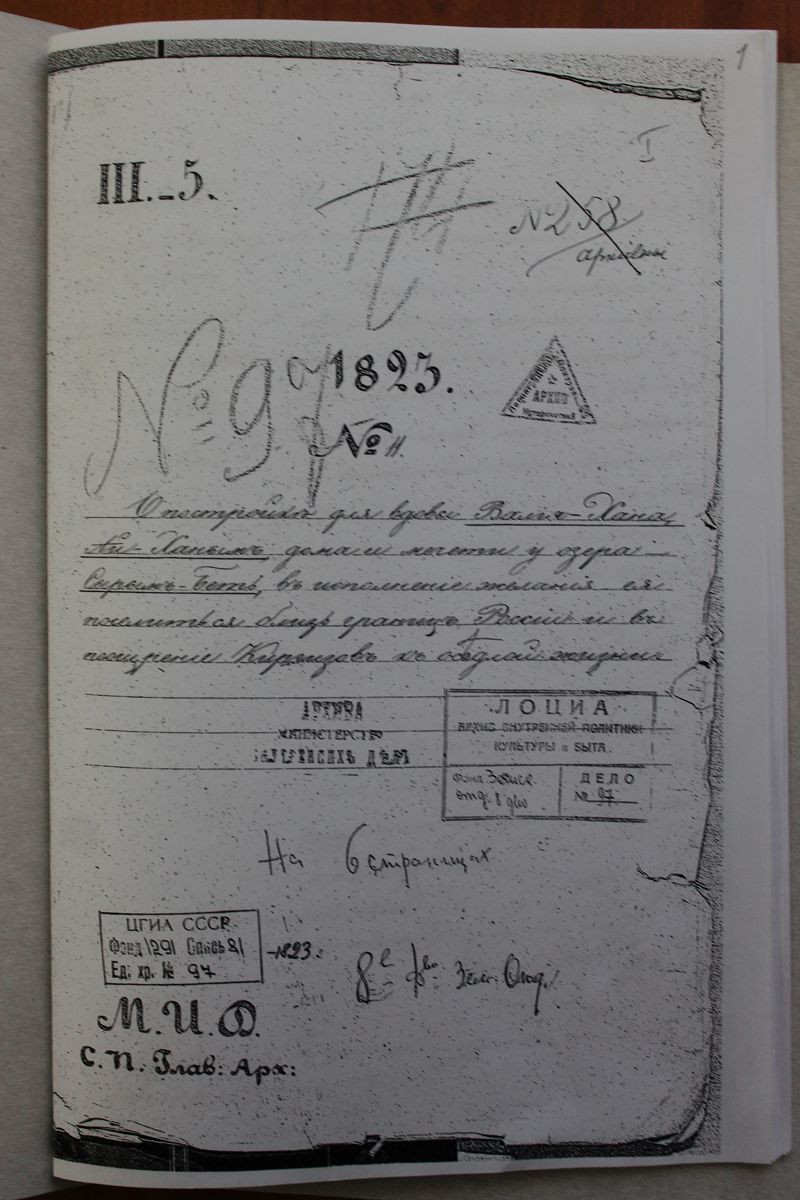 1
I
III.–5.
№ 258
архивный
№ 97
1823.
АРХИВ
№ 11.
О постройкѣ для вдовы Валія-Хана,
Ай-Ханымъ, дома и мечети у озера
Сырымъ-Бетъ, въ исполненіе желанія ея
поселиться близь границъ Россіи и въ
поощреніе Киргизовъ къ осѣдлой жизни
АРХИВА
МИНИСТЕРСТВО
ВНУТРЕННИХЪ ДѢЛЪ
ЛОЦИА
АРХИВ ВНУТРЕННЕЙ ПОЛИТИКИ
КУЛЬТУРЫ и БЫТА
Фонд
отд.
ДЕЛО
№ 97
На 6 страницах
ЦГИА СССР
Фонд 1291 Опись 81
Ед. хр. № 97
–1823 г.
Зем. Отд.
М.И.Д.
С.П. Глав: Арх: